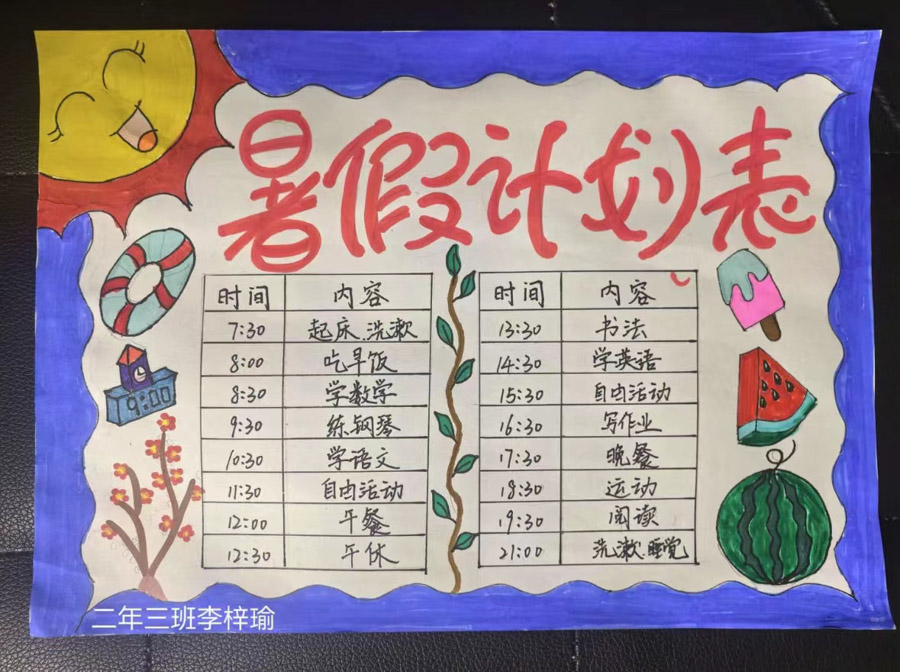 暑假计划表
时间 内容
7:30 起床、洗漱
8:00 吃早饭
8:30 学数学
9:30 练钢琴
10:30 学语文
11:30 自由活动
12:00 午餐
12:30 午休
时间 内容
13:30 书法
14:30 学英语
15:30 自由活动
16:30 写作业
17:30 晚餐
18:30 运动
19:30 阅读
21:00 洗漱、睡觉
9:00
二年三班李梓瑜